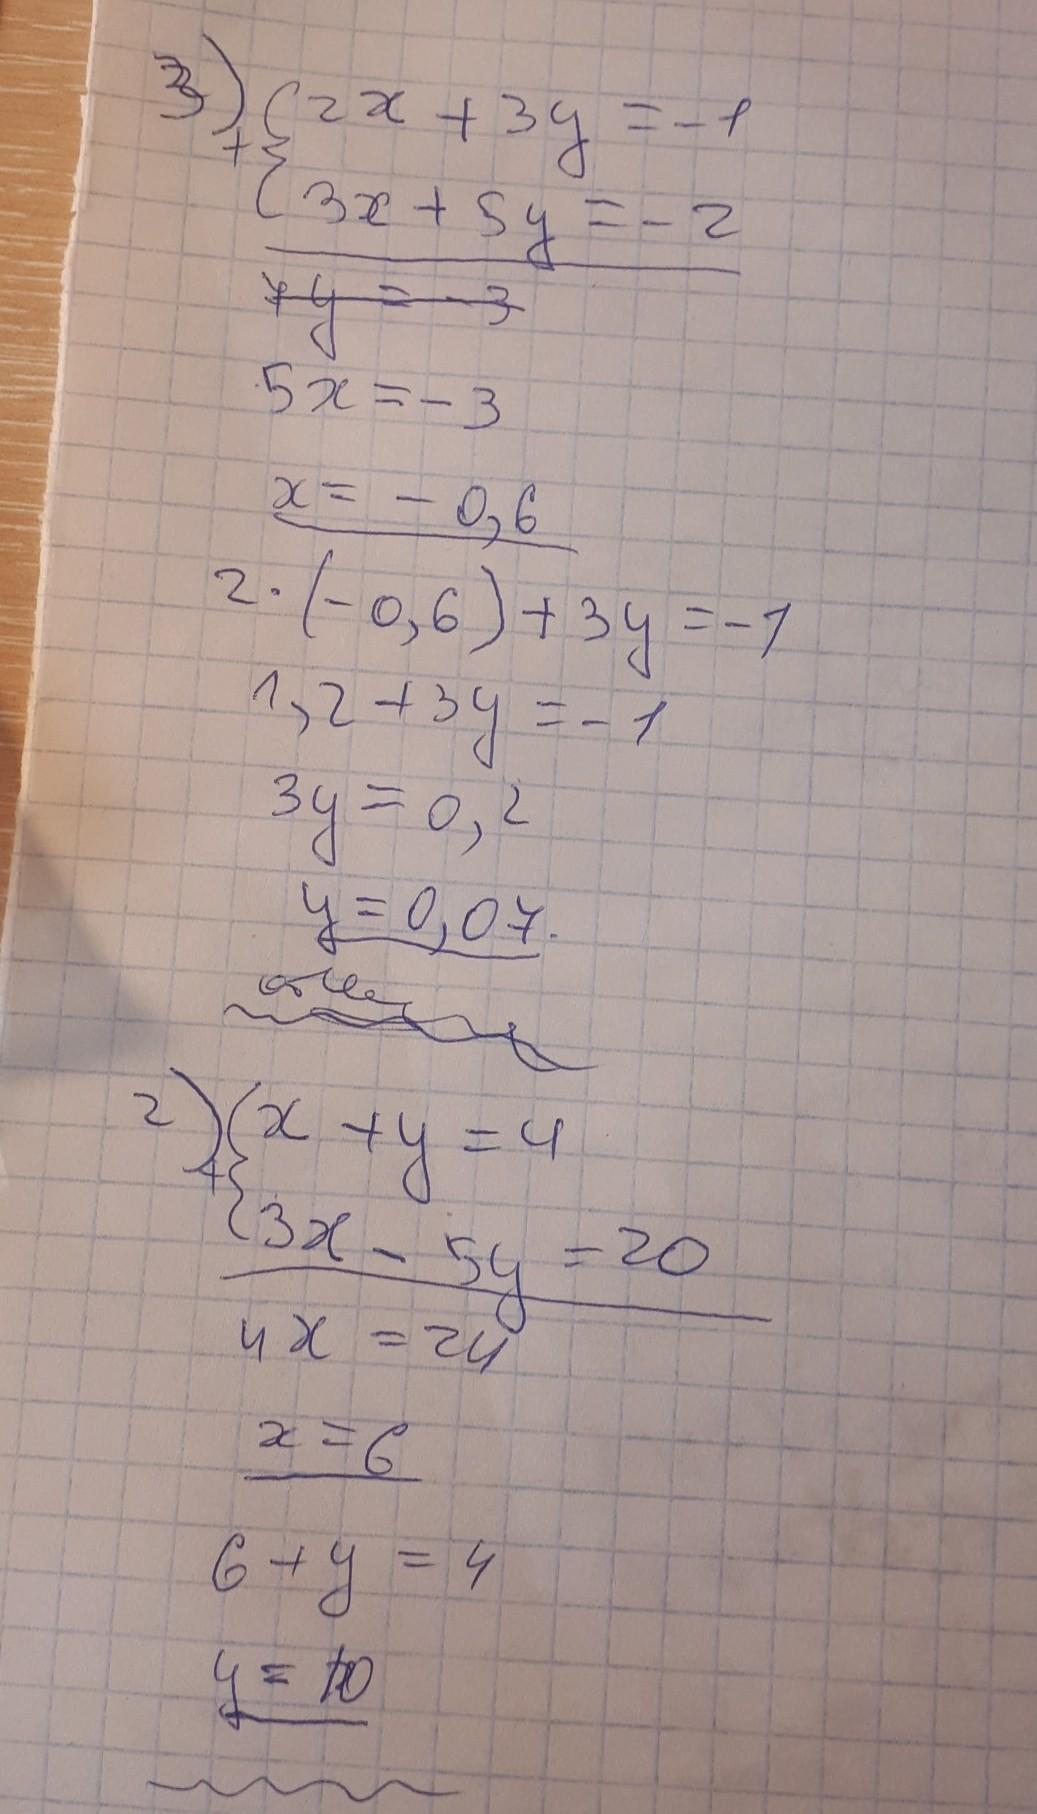 3) + { 2x + 3y = -1
3x + 5y = -2
7y = -3
5x = -3
x = -0,6
2·(-0,6) + 3y = -1
1,2 + 3y = -1
3y = 0,2
y = 0,07.
2) + { x + y = 4
3x - 5y = 20
4x = 24
x = 6
6 + y = 4
y = 10